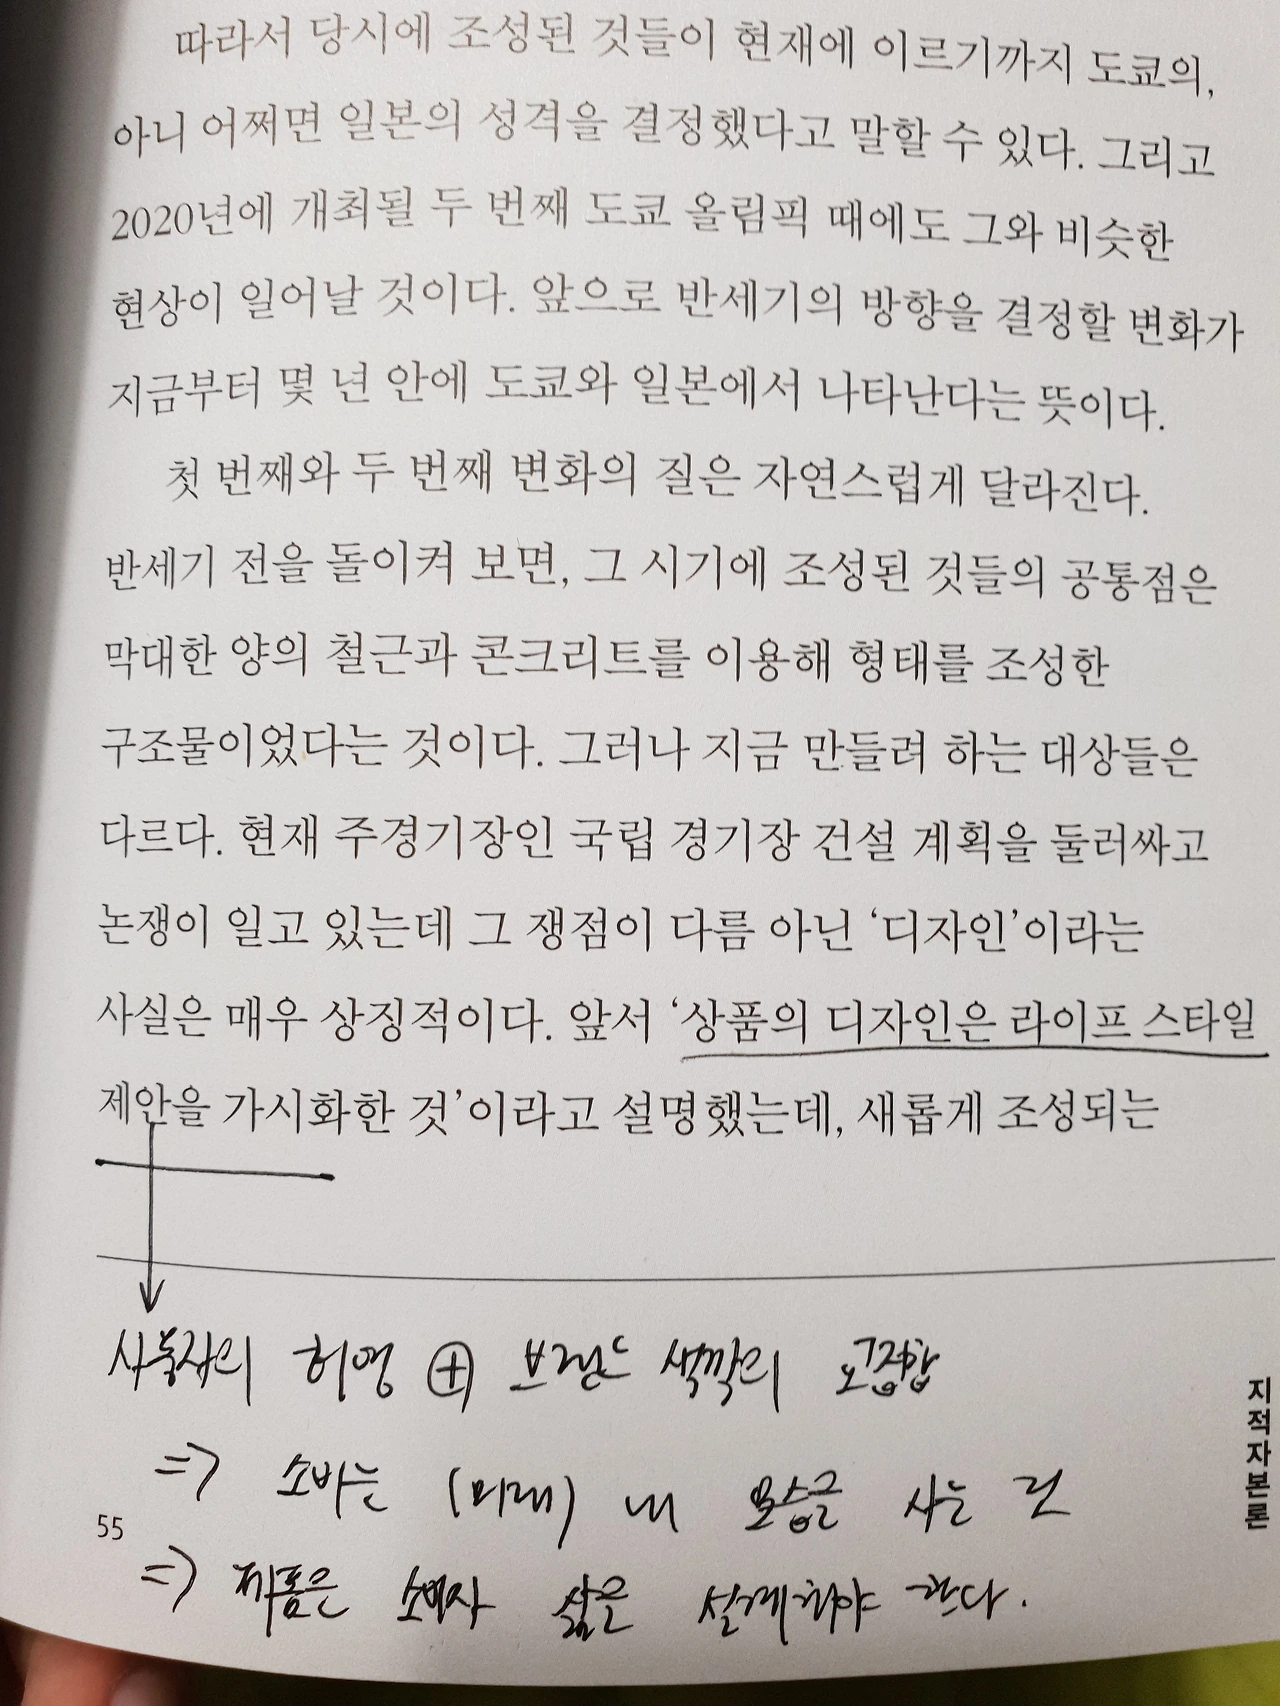 따라서 당시에 조성된 것들이 현재에 이르기까지 도쿄의,
아니 어쩌면 일본의 성격을 결정했다고 말할 수 있다. 그리고
2020년에 개최될 두 번째 도쿄 올림픽 때에도 그와 비슷한
현상이 일어날 것이다. 앞으로 반세기의 방향을 결정할 변화가
지금부터 몇 년 안에 도쿄와 일본에서 나타난다는 뜻이다.
첫 번째와 두 번째 변화의 질은 자연스럽게 달라진다.
반세기 전을 돌이켜 보면, 그 시기에 조성된 것들의 공통점은
막대한 양의 철근과 콘크리트를 이용해 형태를 조성한
구조물이었다는 것이다. 그러나 지금 만들려 하는 대상들은
다르다. 현재 주경기장인 국립 경기장 건설 계획을 둘러싸고
논쟁이 일고 있는데 그 쟁점이 다름 아닌 ‘디자인’이라는
사실은 매우 상징적이다. 앞서 ‘상품의 디자인은 라이프 스타일
제안을 가시화한 것’이라고 설명했는데, 새롭게 조성되는
사용자의 허영 ⊕ 브랜드 색깔의 교집합
⇒ 소비는 (미래) 내 모습을 사는 것
⇒ 제품은 소비자 삶을 설계해야 한다.
55
지적자본론